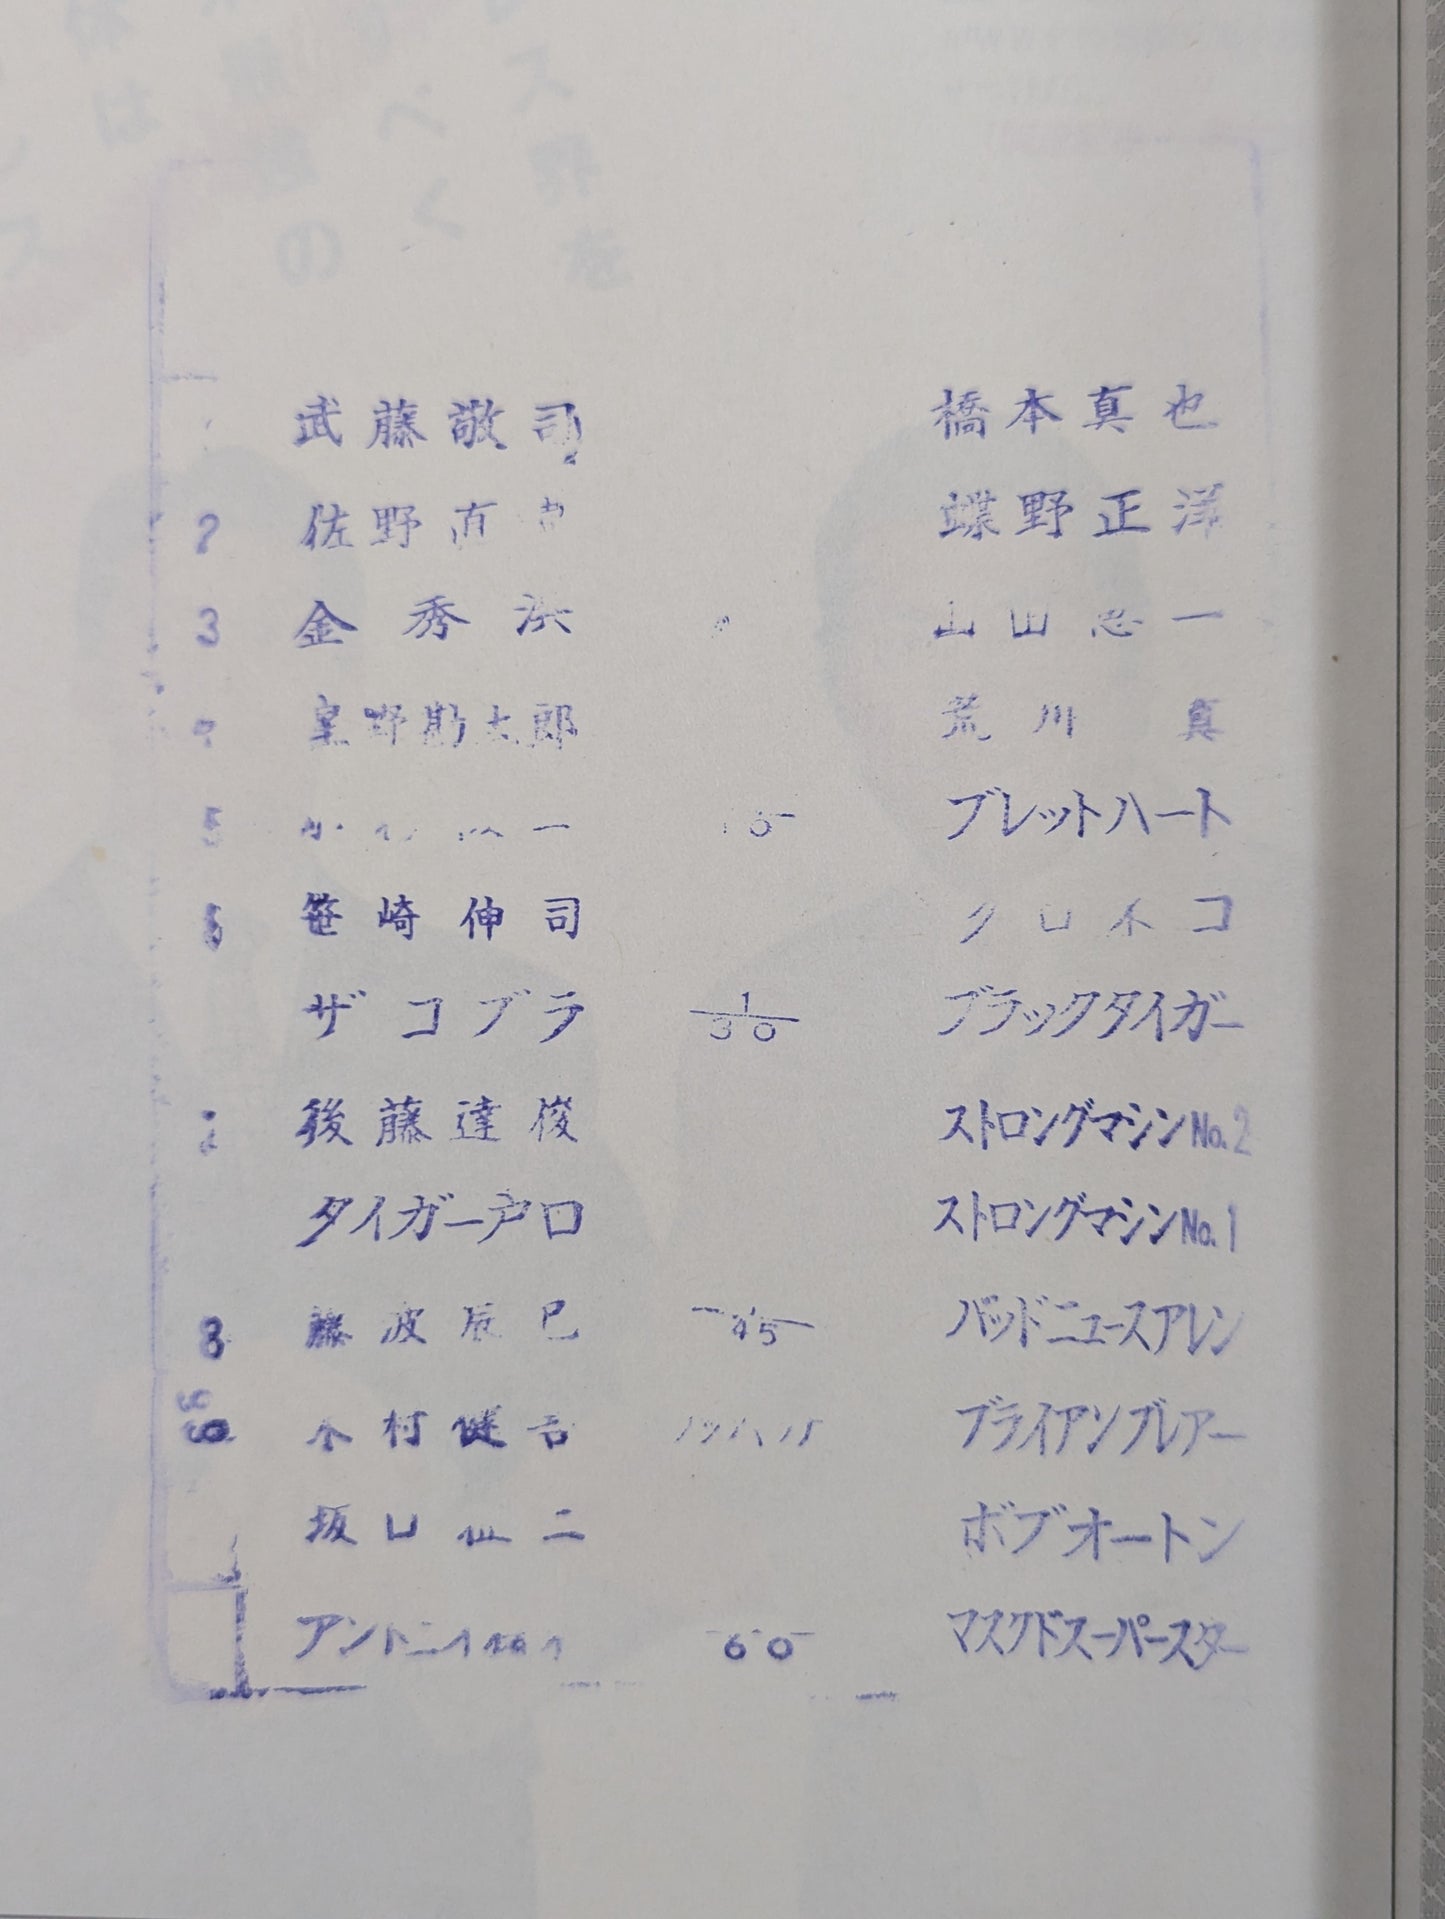 武藤敬司 橋本真也
2 佐野直 蝶野正洋
3 金秀洪 山田恵一
星野勘太郎 荒川真
5 ブレットハート
6 笹崎伸司 クロネコ
ザコブラ 1/30 ブラックタイガー
後藤達俊 ストロングマシンNo.2
タイガー戸口 ストロングマシンNo.1
8 藤波辰巳 45 バッドニュースアレン
木村健吾 ブライアンブレアー
坂口征二 ボブオートン
アントニオ猪木 60 マスクドスーパースター